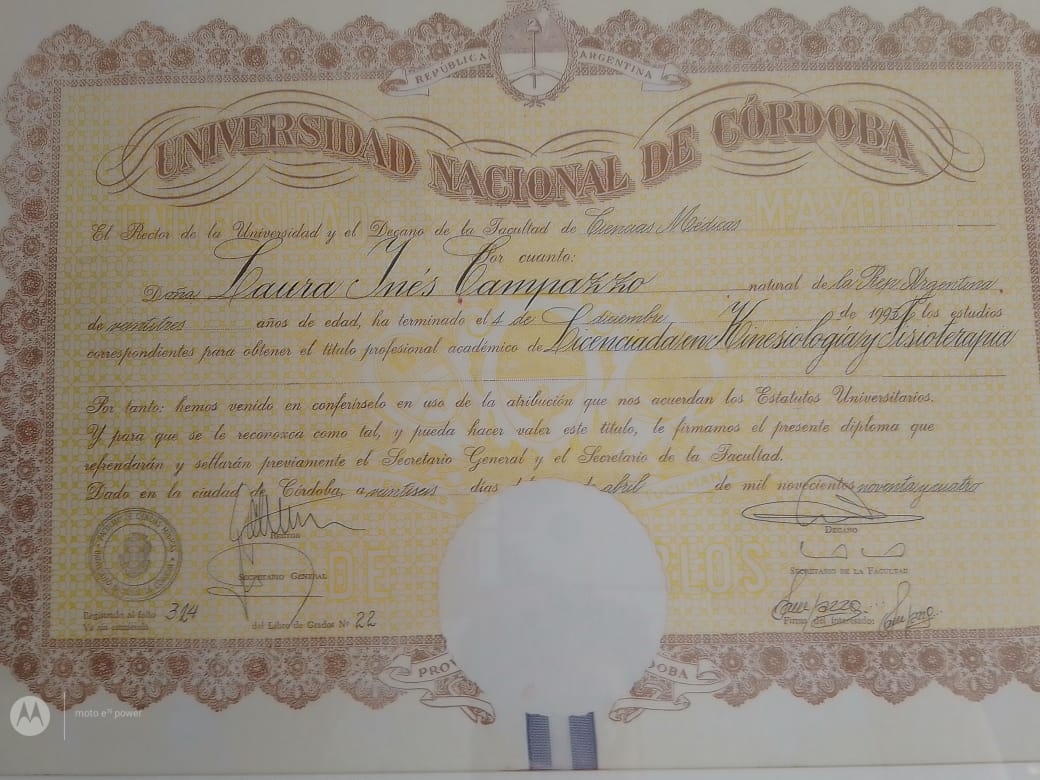 REPÚBLICA ARGENTINA
UNIVERSIDAD NACIONAL DE CÓRDOBA
El Rector de la Universidad y el Decano de la Facultad de Ciencias Médicas
Por cuanto:
Doña Laura Inés Campazzo natural de la Rep. Argentina,
de veintitres años de edad, ha terminado el 4 de diciembre de 1992 los estudios
correspondientes para obtener el título profesional académico de Licenciada en Kinesiología y Fisioterapia
Por tanto: hemos venido en conferírselo en uso de la atribución que nos acuerdan los Estatutos Universitarios.
Y para que se le reconozca como tal, y pueda hacer valer este título, le firmamos el presente diploma que
refrendarán y sellarán previamente el Secretario General y el Secretario de la Facultad.
Dado en la ciudad de Córdoba, a veintiseis días de abril de mil novecientos noventa y cuatro
RECTOR
DECANO
SECRETARIO GENERAL
SECRETARIO DE LA FACULTAD
Registrado al folio 314
del Libro de Grados Nº 22
Firma del interesado:
moto e⁵ power